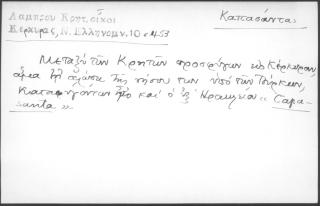 Λαμπρου Κρητ. οίκοι
Κερκυρας, Ν. Ελληνομν. 10 σ. 453
Καπασάντας
Μεταξύ των Κρητών προσφύγων εις Κέρκυραν,
άμα τη αλώσει της νήσου των υπό των Τούρκων,
καταφυγόντων και ο εξ Ηρακλείου "Capa-
santa".